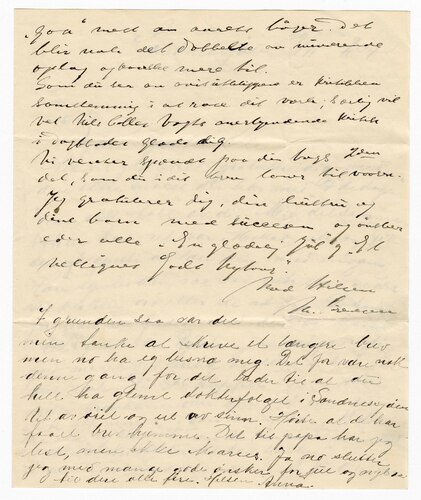 "gaa" med din anrets bøger. Det
blir nok det dobbelte av nuværende
oplag og kanske mere til.
Som du ser av avisutklippene er kritikken
samstemmig i at rose dit verk; særlig vil
vel Nils Colletts Vogts anerkjendende kritik
i Dagbladet glæde dig.
Vi venter spændt paa din bogs 2den
del, som du i dit brev lover til vaaren.
Jeg gratulerer dig, din hustru og
dine barn med succeen og ønsker
eder alle "En gladelig Jul og Et
velsignet Godt Nytaar".
Med Hilsen
I grunden saa var det
min tanke at skrive et længere brev
men no ha eg besind meg. Det før være nok
denne gang for det lader til at du
helt ha glemt i Sandnessjøen
bet av siel og ut av sinn. at de har
faaet brev hjemme. Det til papa har jeg
læst, men ikke Maries. Ja no slutter
jeg med mange gode ønsker for jul og nytaar
til dere alle fire. Hilsen Anna